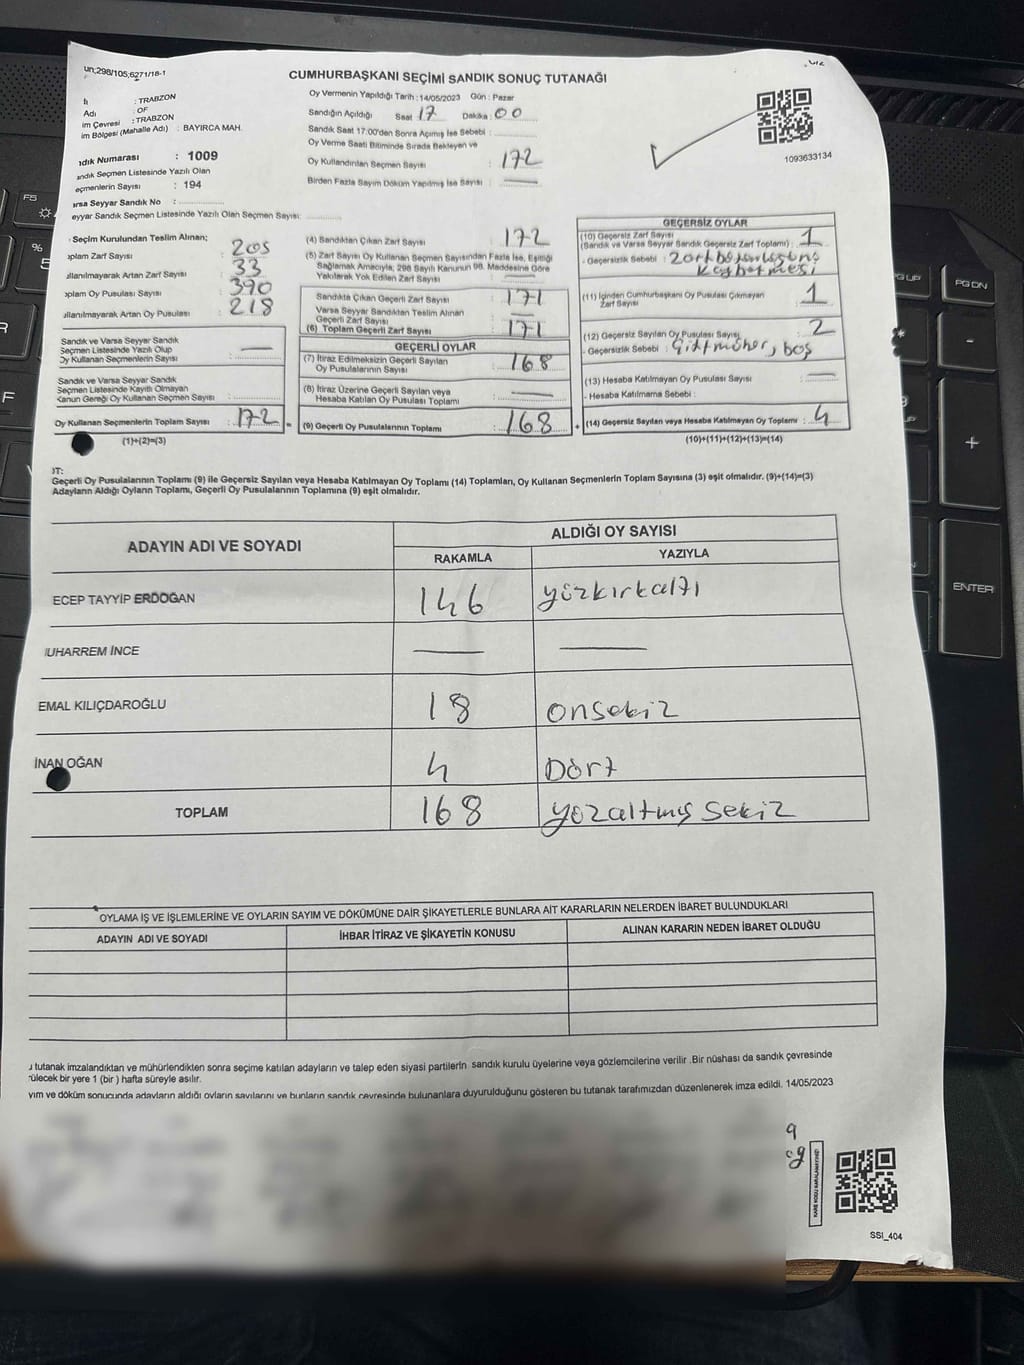 un;298/105;6271/18-1
CUMHURBAŞKANI SEÇİMİ SANDIK SONUÇ TUTANAĞI
: TRABZON
Adı : OF
im Çevresi : TRABZON
im Bölgesi (Mahalle Adı) : BAYIRCA MAH.
ndık Numarası : 1009
andık Seçmen Listesinde Yazılı Olan
eçmenlerin Sayısı : 194
arsa Seyyar Sandık No :
eyyar Sandık Seçmen Listesinde Yazılı Olan Seçmen Sayısı:
Oy Vermenin Yapıldığı Tarih : 14/05/2023 Gün : Pazar
Sandığın Açıldığı Saat : 17 Dakika : 00
Sandık Saat 17:00'den Sonra Açımış İse Sebebi :
Oy Verme Saati Bitiminde Sırada Bekleyen ve
Oy Kullandırılan Seçmen Sayısı : 172
Birden Fazla Sayım Döküm Yapılmış İse Sayısı : —
1093633134
Seçim Kurulundan Teslim Alınan;
oplam Zarf Sayısı : 205
ullanılmayarak Artan Zarf Sayısı : 33
oplam Oy Pusulası Sayısı : 390
ullanılmayarak Artan Oy Pusulası : 218
Sandık ve Varsa Seyyar Sandık
Seçmen Listesinde Yazılı Olup
Oy Kullanan Seçmenlerin Sayısı : —
Sandık ve Varsa Seyyar Sandık
Seçmen Listesinde Kayıtlı Olmayan
Kanun Gereği Oy Kullanan Seçmen Sayısı :
Oy Kullanan Seçmenlerin Toplam Sayısı : 172
(1)+(2)=(3)
(4) Sandıktan Çıkan Zarf Sayısı : 172
(5) Zarf Sayısı Oy Kullanan Seçmen Sayısından Fazla İse, Eşitliği
Sağlamak Amacıyla, 298 Sayılı Kanunun 98. Maddesine Göre
Yakılarak Yok Edilen Zarf Sayısı : —
Sandıkta Çıkan Geçerli Zarf Sayısı : 171
Varsa Seyyar Sandıktan Teslim Alınan
Geçerli Zarf Sayısı : —
(6) Toplam Geçerli Zarf Sayısı : 171
GEÇERLİ OYLAR
(7) İtiraz Edilmeksizin Geçerli Sayılan
Oy Pusulalarının Sayısı : 168
(8) İtiraz Üzerine Geçerli Sayılan veya
Hesaba Katılan Oy Pusulası Toplamı : —
(9) Geçerli Oy Pusulalarının Toplamı : 168
GEÇERSİZ OYLAR
(10) Geçersiz Zarf Sayısı
(Sandık ve Varsa Seyyar Sandık Geçersiz Zarf Toplamı) : 1
- Geçersizlik Sebebi : Zarf bütünlüğünü
kaybetmesi
(11) İçinden Cumhurbaşkanı Oy Pusulası Çıkmayan
Zarf Sayısı : 1
(12) Geçersiz Sayılan Oy Pusulası Sayısı : 2
- Geçersizlik Sebebi : Çift mühür, boş
(13) Hesaba Katılmayan Oy Pusulası Sayısı : —
- Hesaba Katılmama Sebebi :
(14) Geçersiz Sayılan veya Hesaba Katılmayan Oy Toplamı : 4
(10)+(11)+(12)+(13)=(14)
OT:
Geçerli Oy Pusulalarının Toplamı (9) ile Geçersiz Sayılan veya Hesaba Katılmayan Oy Toplamı (14) Toplamları, Oy Kullanan Seçmenlerin Toplam Sayısına (3) eşit olmalıdır. (9)+(14)=(3)
Adayların Aldığı Oyların Toplamı, Geçerli Oy Pusulalarının Toplamına (9) eşit olmalıdır.
ADAYIN ADI VE SOYADI ALDIĞI OY SAYISI
RAKAMLA YAZIYLA
ECEP TAYYİP ERDOĞAN 146 yüzkırkaltı
UHARREM İNCE — —
EMAL KILIÇDAROĞLU 18 onsekiz
İNAN OĞAN 4 Dört
TOPLAM 168 yüzaltmış sekiz
OYLAMA İŞ VE İŞLEMLERİNE VE OYLARIN SAYIM VE DÖKÜMÜNE DAİR ŞİKAYETLERLE BUNLARA AİT KARARLARIN NELERDEN İBARET BULUNDUKLARI
ADAYIN ADI VE SOYADI İHBAR İTİRAZ VE ŞİKAYETİN KONUSU ALINAN KARARIN NEDEN İBARET OLDUĞU
u tutanak imzalandıktan ve mühürlendikten sonra seçime katılan adayların ve talep eden siyasi partilerin sandık kurulu üyelerine veya gözlemcilerine verilir .Bir nüshası da sandık çevresinde
rülecek bir yere 1 (bir ) hafta süreyle asılır.
yım ve döküm sonucunda adayların aldığı oyların sayılarını ve bunların sandık çevresinde bulunanlara duyurulduğunu gösteren bu tutanak tarafımızdan düzenlenerek imza edildi. 14/05/2023
SSI_404
F5
%
5
R
F
PG UP
PG DN
-
+
ENTER